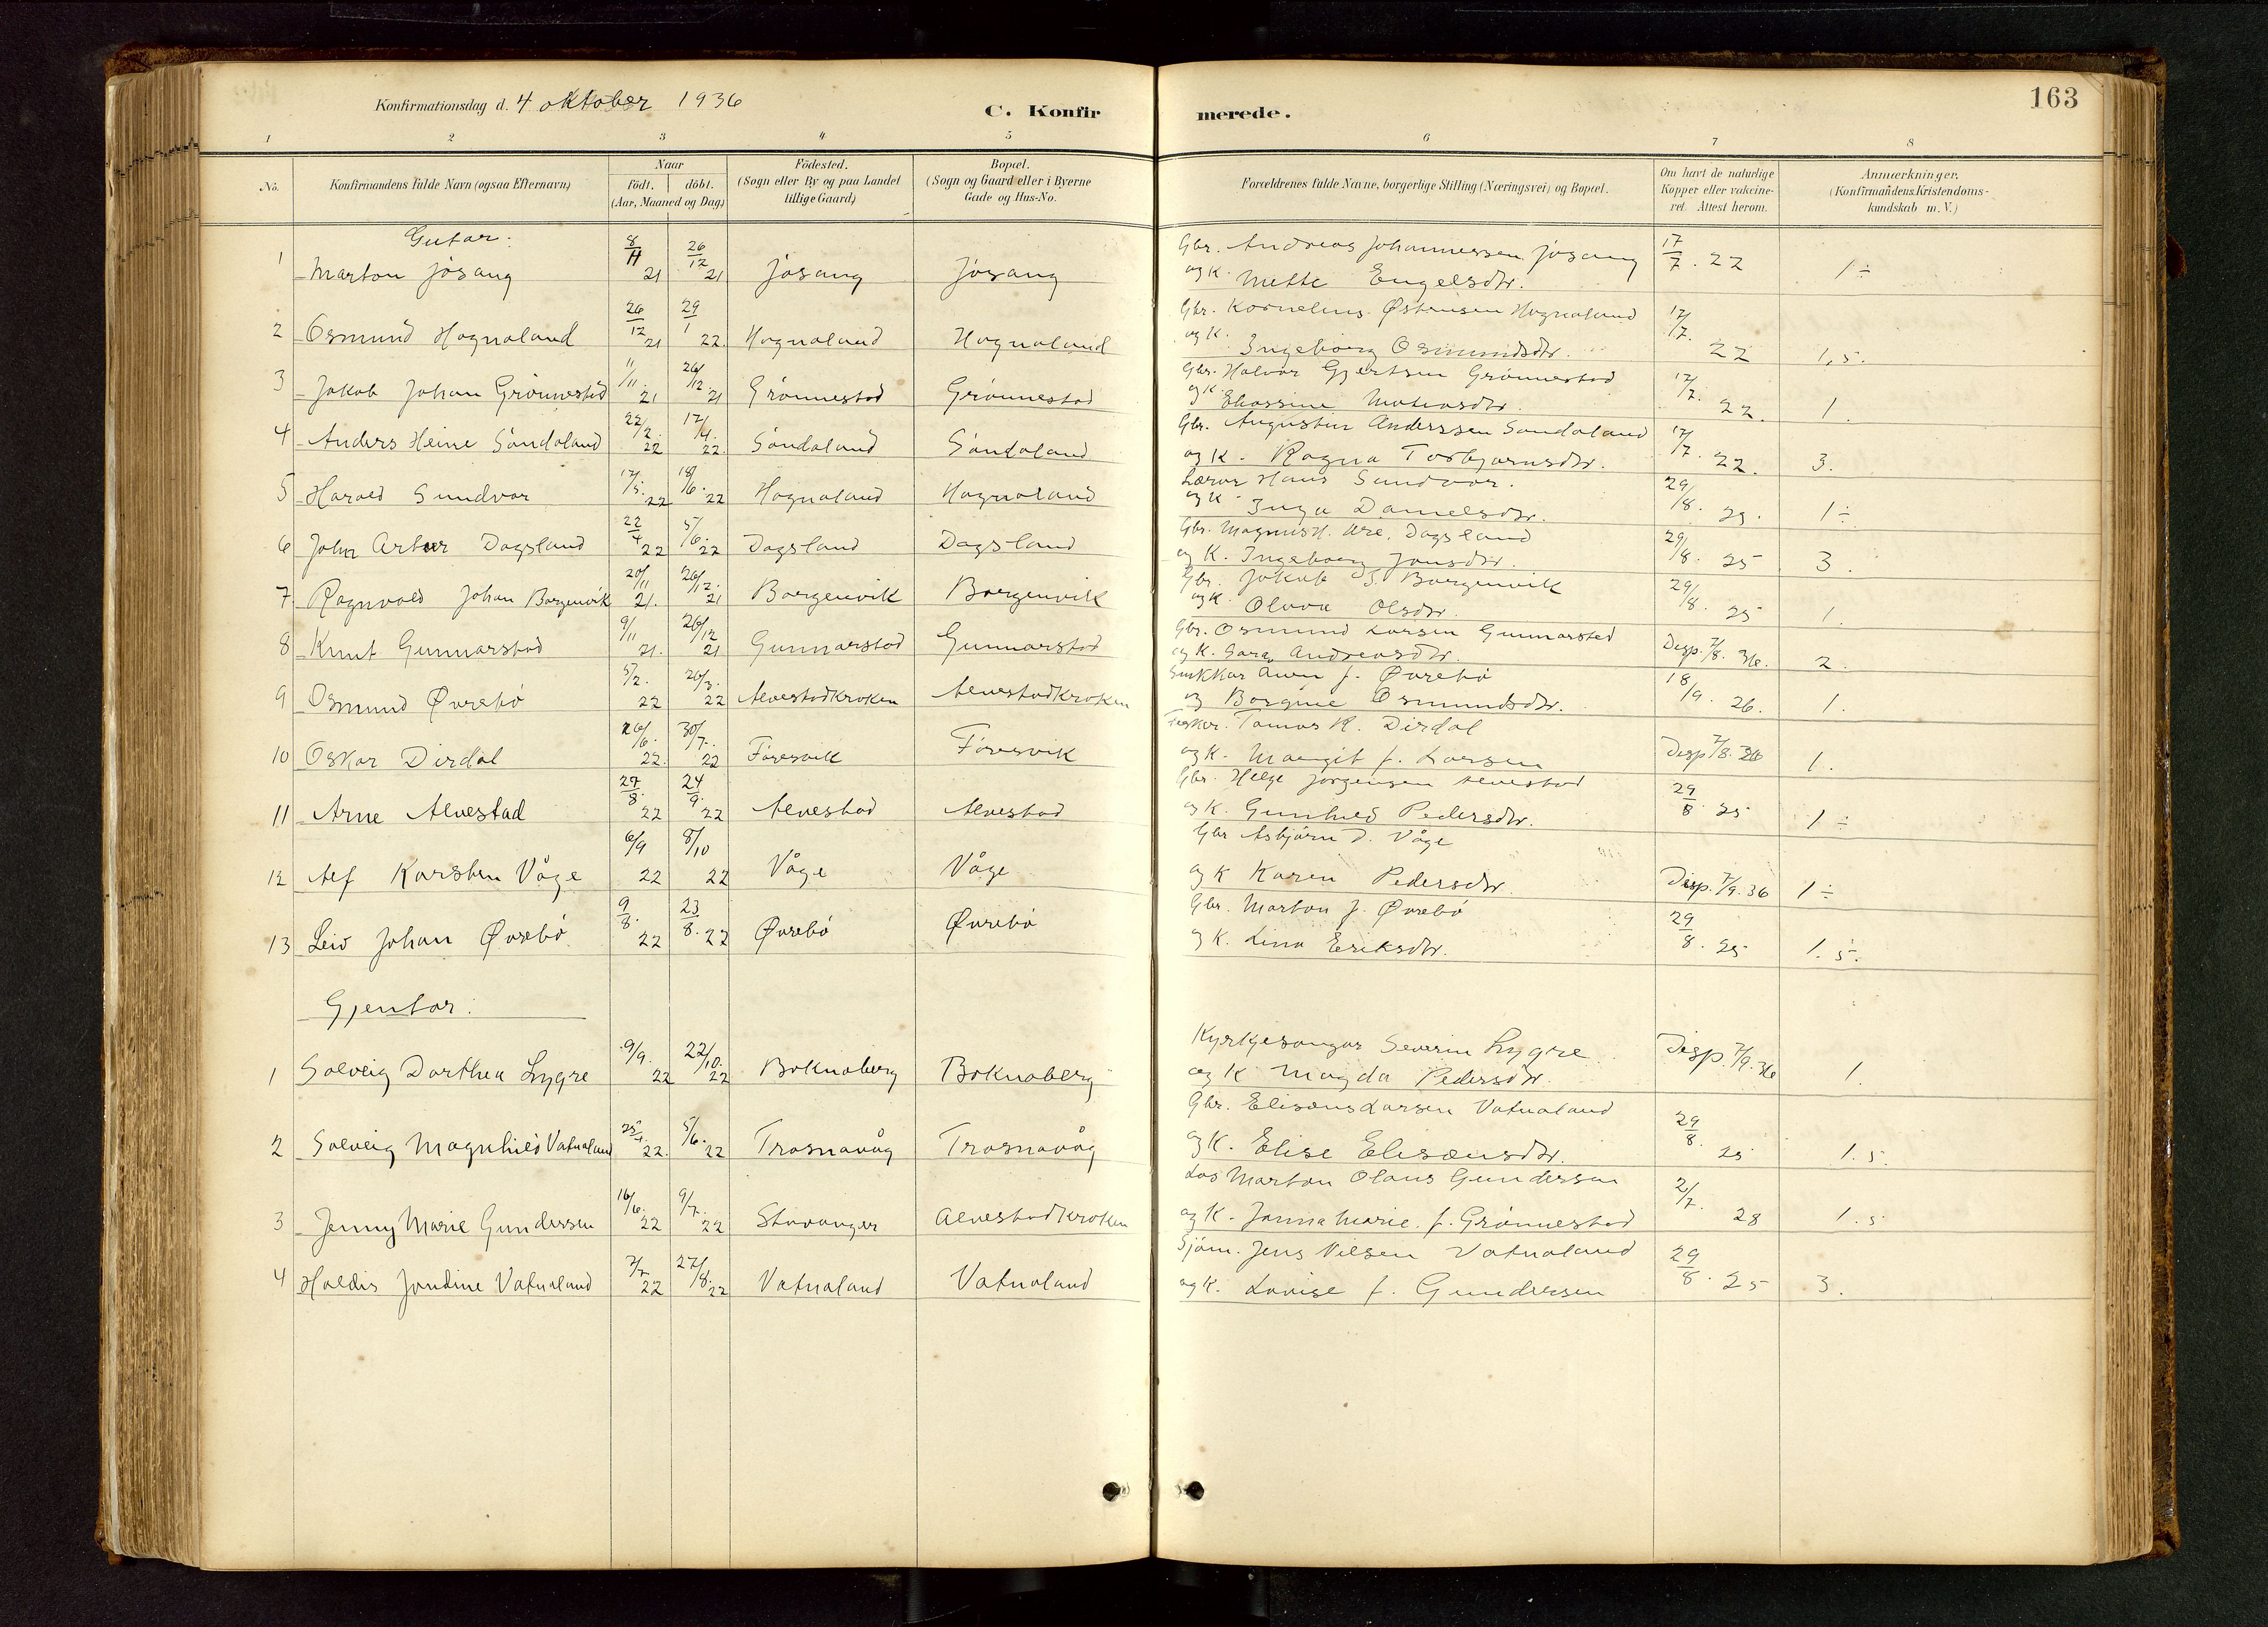 163
Konfirmationsdag d. 4 oktober 1936
C. Konfirmerede.
1 2 3 4 5 6 7 8
No. Konfirmandens fulde Navn (ogsaa Efternavn) Naar födt. döbt. (Aar, Maaned og Dag) Födested. (Sogn eller By og paa Landet tillige Gaard) Bopæl. (Sogn og Gaard eller i Byerne Gade og Hus-No. Forældrenes fulde Navne, borgerlige Stilling (Næringsvei) og Bopæl. Om havt de naturlige Kopper eller vakcineret. Attest herom. Anmærkninger. (Konfirmandens Kristendomskundskab m. V.)
Gutar:
1 Marton Jøsang 8/11 21 26/12 21 Jøsang Jøsang Gbr. Andreas Johannessen Jøsang 17/7. 22 1÷
og K. Mette Engelsdtr.
2 Osmund Hognaland 26/12 21 29/1 22. Hognaland Hognaland Gbr. Kornelius Østensen Hognaland 17/7. 22 1,5.
og K. Ingeborg Osmundsdtr.
3 Jakob Johan Grønnestad 11/11. 21 26/12. 21 Grønnestad Grønnestad Gbr. Halvor Gjertsen Grønnestad 17/7. 22. 1.
og K.
4 Anders Heine Sandaland 22/2. 22 17/4. 22. Sandaland Sandaland Gbr. Augustin Anderssen Sandaland 17/7. 22. 3.
og K. Ragna Torbjørnsdtr.
5 Harald Sundvor 17/5. 22 18/6. 22 Hognaland Hognaland Lærar Hans Sundvor. 29/8. 25. 1÷
og K. Inga Danielsdtr.
6 John Artur Dagsland 22/4 22 5/6. 22 Dagsland Dagsland Gbr. Magnus H. Are, Dagsland 29/8. 25 3.
og K. Ingeborg Jonsdtr.
7. Ragnvald Johan Borgenvik 20/11 21. 26/12. 21 Borgenvik Borgenvik Gbr. Jakob S. Borgenvik 29/8. 25 1.
og K. Olava Olsdtr.
8 Knut Gunnarstad 9/11 21. 26/12 21 Gunnarstad Gunnarstad Gbr. Osmund Larsen Gunnarstad Disp. 7/8. 36. 2.
og K. Sara Andreasdtr.
9 Osmund Øvrebø 5/2. 22 26/3. 22 Alvestadkroken Alvestadkroken Snikkar Øvrebø 18/9. 26. 1.
og Borgine Osmundsdtr.
10 Oskar Dirdal 26/6. 22. 30/7. 22 Føresvik Føresvik Fiskar. Tomas K. Dirdal Disp 7/8. 36 1.
og K. Margit f. Larsen
11 Arne Alvestad 27/8. 22 24/9. 22 Alvestad Alvestad Gbr. Helge Jørgensen Alvestad 29/8 25 1÷
og K. Gunhild Pedersdtr.
12 Alf Karsten Våge 6/9 22 8/10 22 Våge Våge Gbr Asbjørn D. Våge
og K Karen Pedersdtr. Disp. 7/9. 36 1÷
13 Leiv Johan Øvrebø. 9/8. 22 23/8. 22 Øvrebø Øvrebø Gbr. Marton J. Øvrebø 29/8. 25 1.5.
og K. Lina Eriksdtr.
Gjentar:
1 Solveig Dorthea Lygre 9/9. 22 22/10. 22 Boknaberg Boknaberg Kyrkjesongar Severin Lygre Disp. 7/9. 36 1.
og K Magda Pedersdtr.
2 Solveig Magnhild Vatnaland 25/4. 22. 5/6. 22 Trosnavåg Trosnavåg Gbr. Elisæus Larsen Vatnaland 29/8. 25 1.5.
og K. Elise Elisæusdtr.
3 Jenny Marie Gundersen 16/6. 22 9/7. 22 Stavanger Alvestadkroken Los Marton Olaus Gundersen 2/7. 28 1.5
og K. Janna Marie f. Grønnestad
4 Haldis Jondine Vatnaland 7/7 22 27/8. 22 Vatnaland Vatnaland Sjøm. Jens Nilsen Vatnaland 29/8. 25 3.
og K. Lovise f. Gundersen